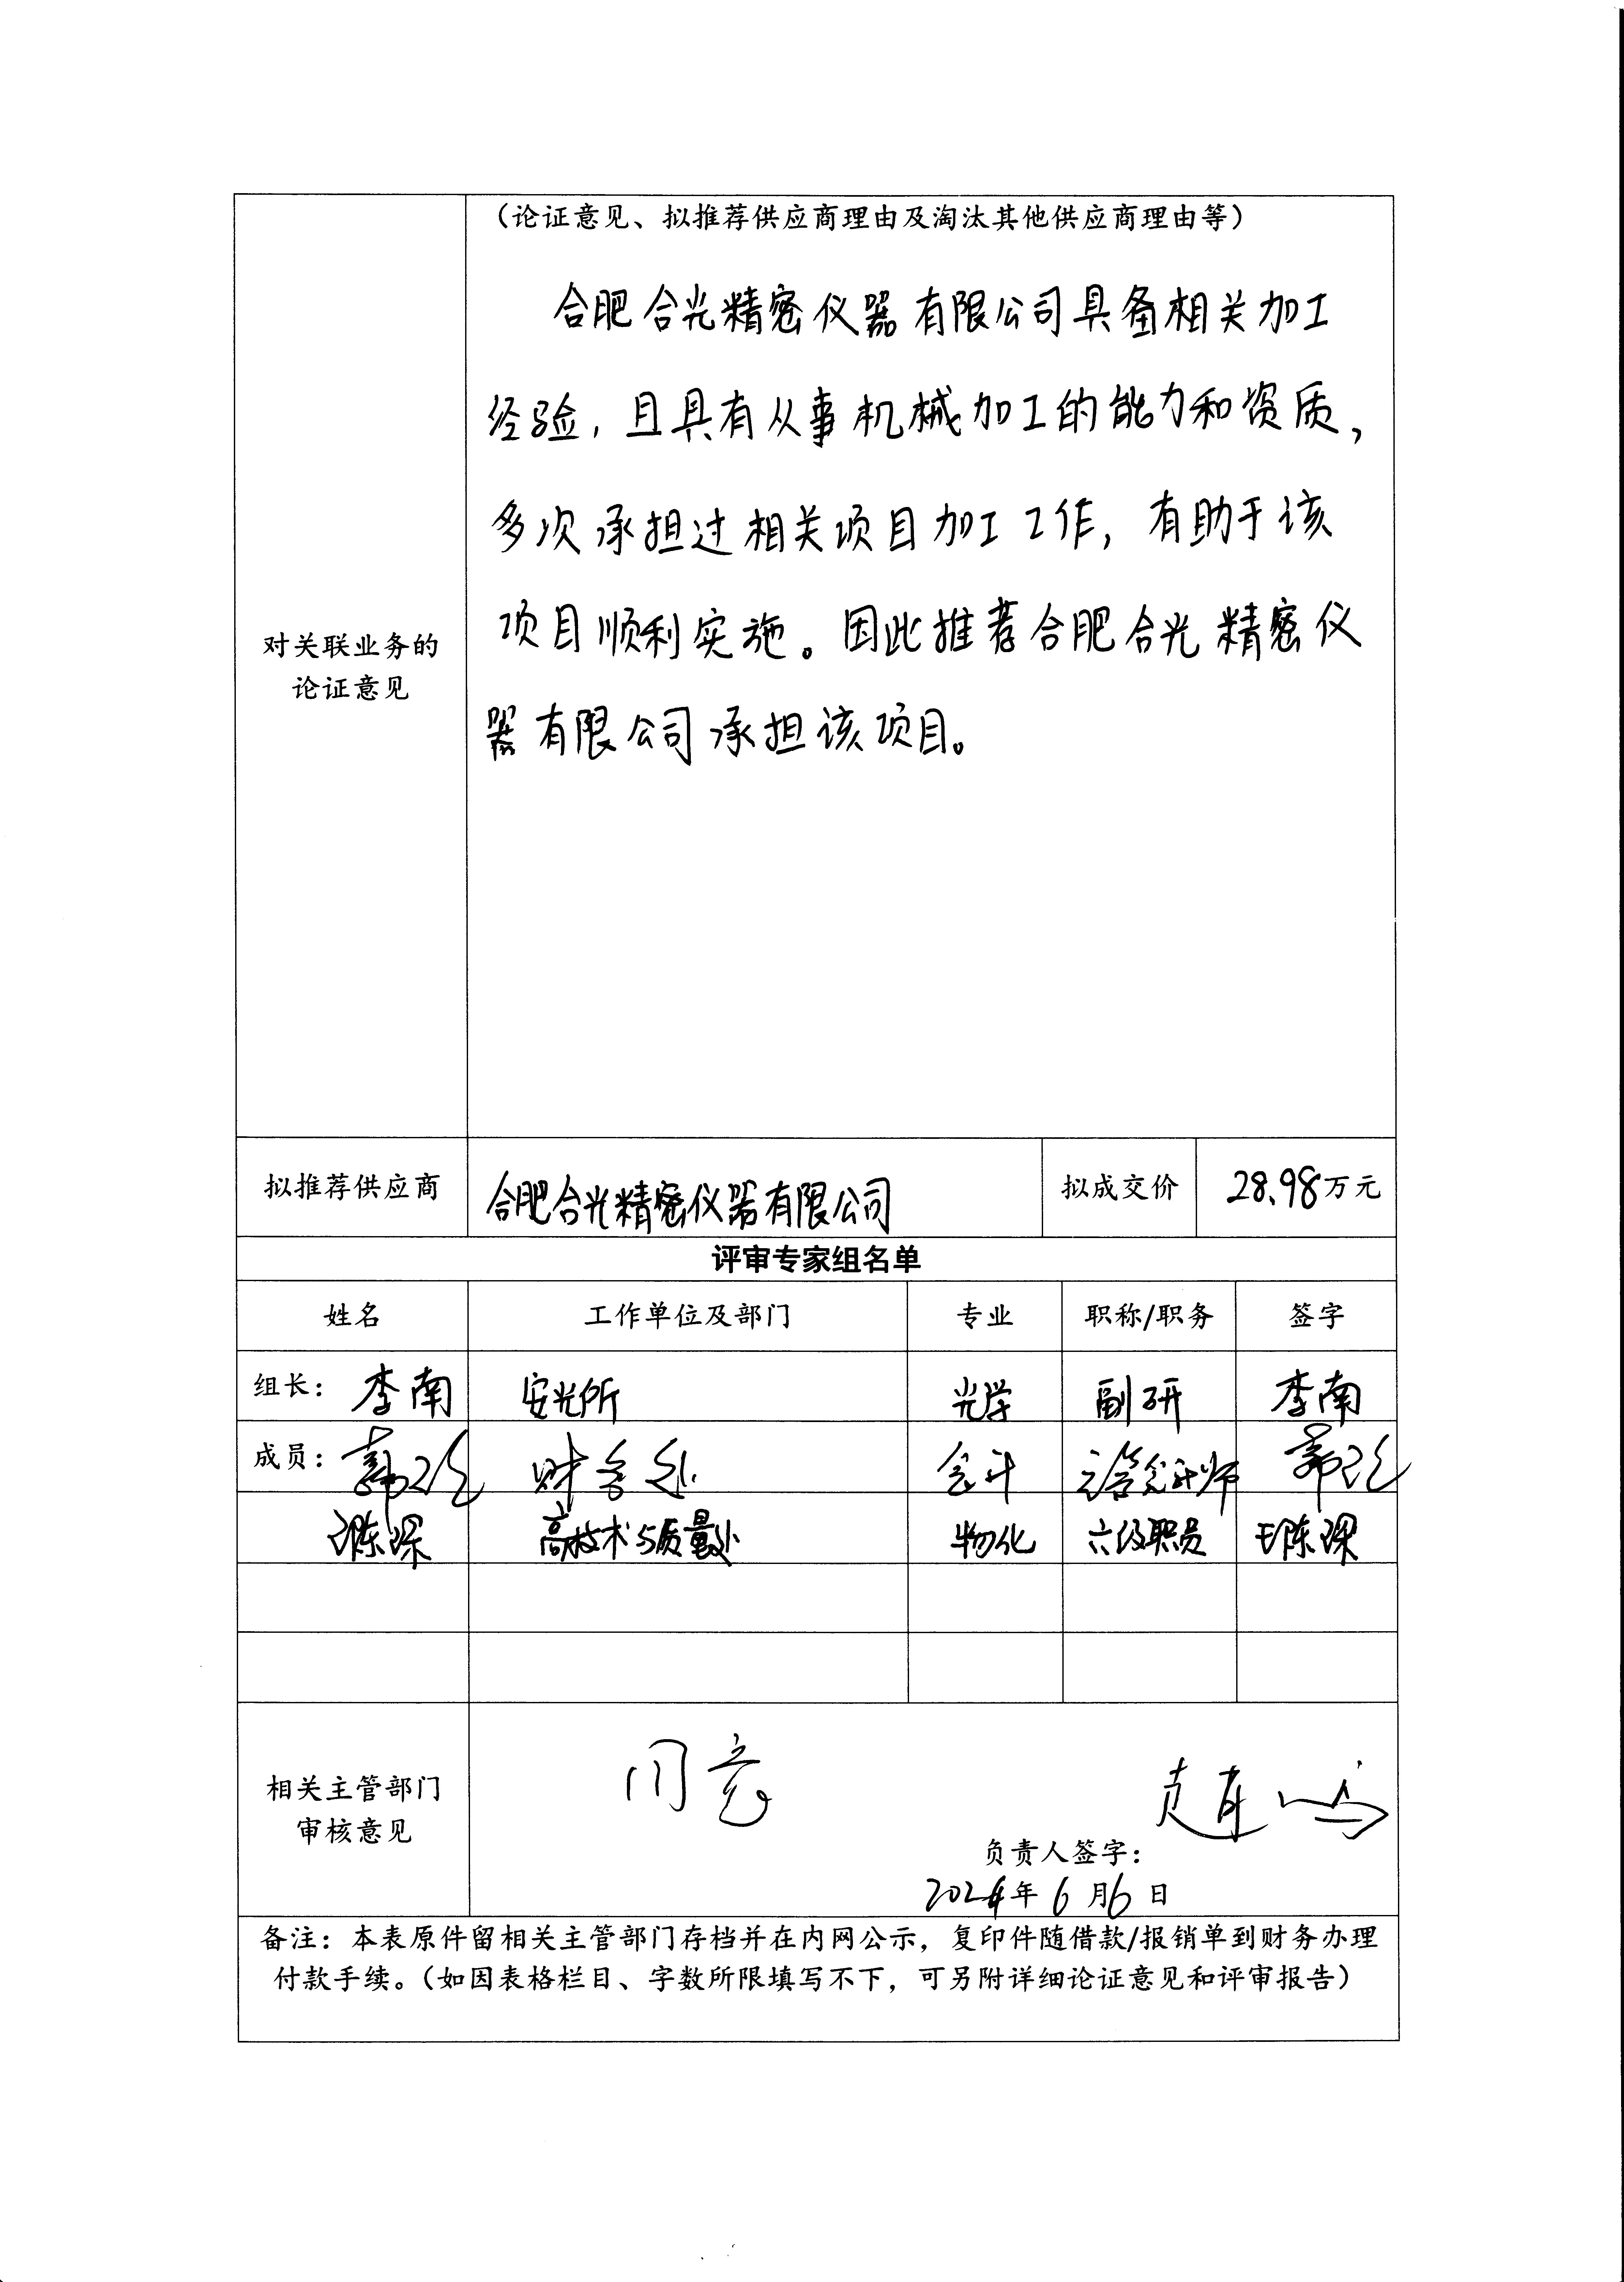 （论证意见、拟推荐供应商理由及淘汰其他供应商理由等）
合肥合光精密仪器有限公司具备相关加工
经验，且具有从事机械加工的能力和资质，
多次承担过相关项目加工工作，有助于该
项目顺利实施。因此推荐合肥合光精密仪
器有限公司承担该项目。
对关联业务的
论证意见
拟推荐供应商 合肥合光精密仪器有限公司 拟成交价 28.98万元
评审专家组名单
姓名 工作单位及部门 专业 职称/职务 签字
组长：李南 安光所 光学 副研 李南
成员： 财务处 会计 会计师
高技术与质量处 物化 六级职员 王陈琛
相关主管部门
审核意见
同意
负责人签字：
2024年6月6日
备注：本表原件留相关主管部门存档并在内网公示，复印件随借款/报销单到财务办理
付款手续。（如因表格栏目、字数所限填写不下，可另附详细论证意见和评审报告）